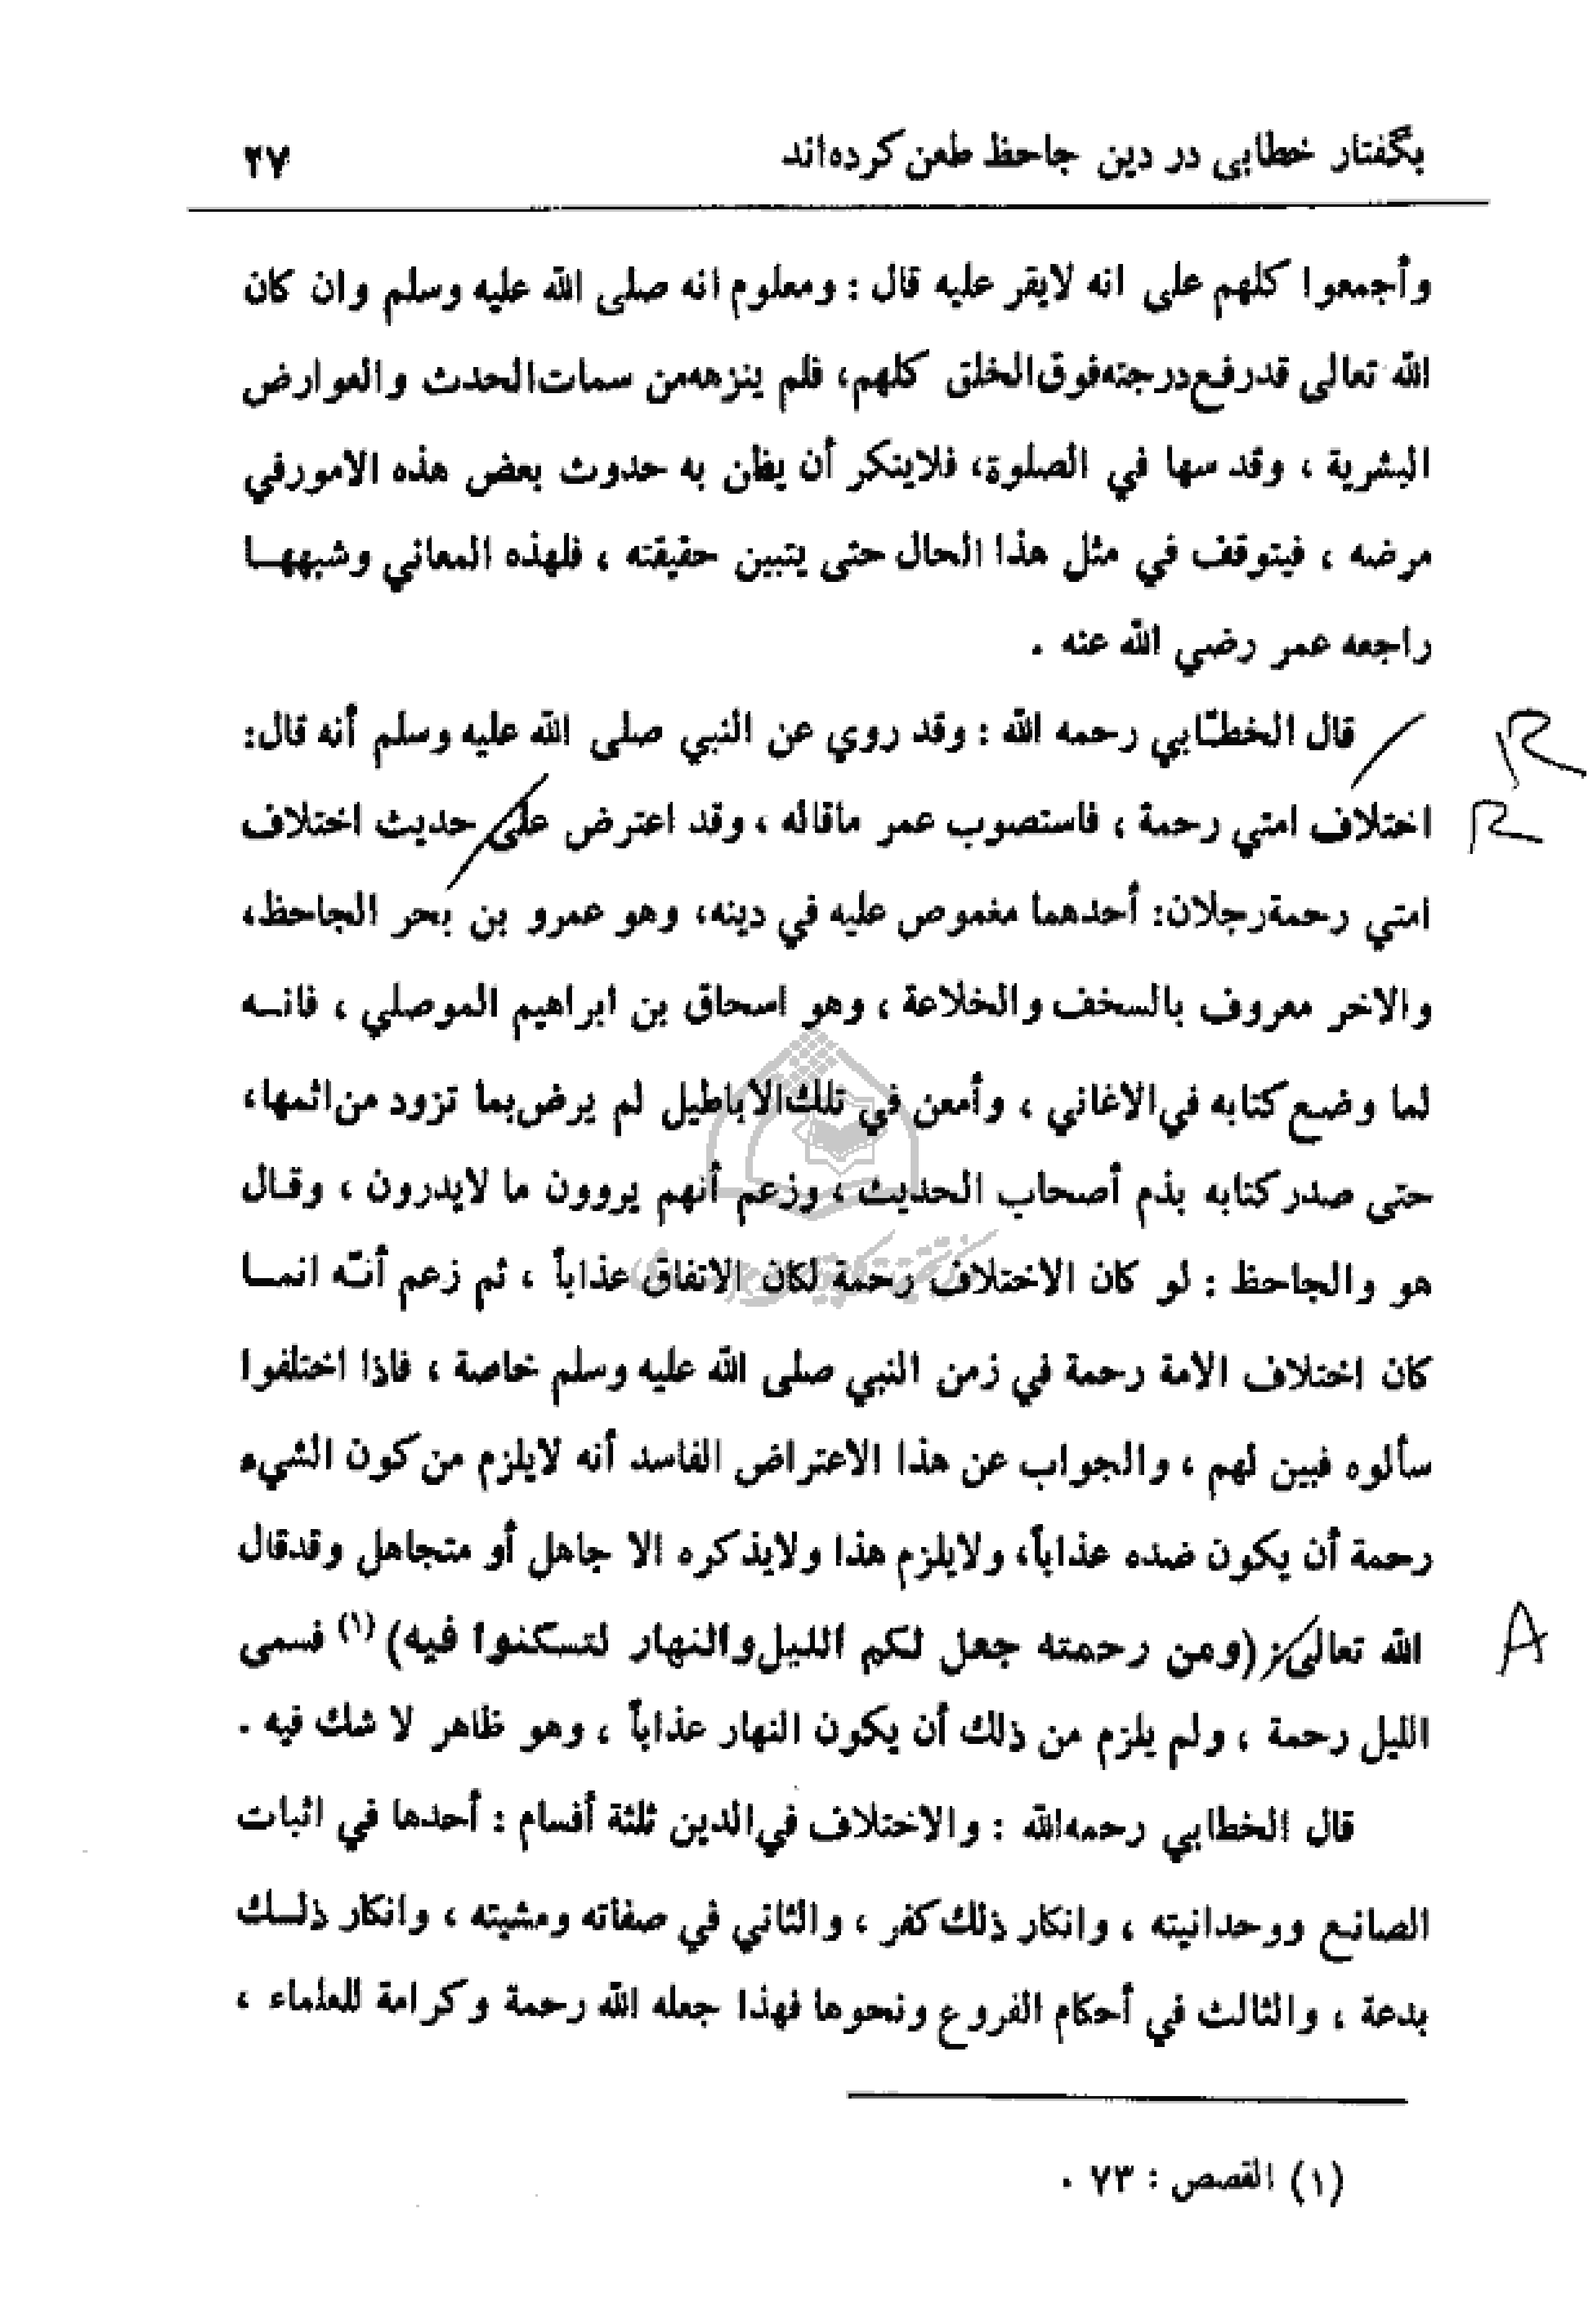 بگفتار خطابی در دین جاحظ طعن کرده‌اند ۲۷
وأجمعوا كلهم على انه لايقر عليه قال : ومعلوم انه صلى الله عليه وسلم وان كان
الله تعالى قدرفع درجته فوق الخلق كلهم، فلم ينزهه من سمات الحدث والعوارض
البشرية ، وقد سها في الصلوة، فلاينكر أن يظن به حدوث بعض هذه الامور في
مرضه ، فيتوقف في مثل هذا الحال حتى يتبين حقيقته ، فلهذه المعاني وشبههـا
راجعه عمر رضي الله عنه .
قال الخطـّابي رحمه الله : وقد روي عن النبي صلى الله عليه وسلم أنه قال: R
اختلاف امتي رحمة ، فاستصوب عمر ماقاله ، وقد اعترض على حديث اختلاف R
امتي رحمة رجلان: أحدهما مغموص عليه في دينه، وهو عمرو بن بحر الجاحظ،
والاخر معروف بالسخف والخلاعة ، وهو اسحاق بن ابراهيم الموصلي ، فانـه
لما وضع كتابه في الاغاني ، وأمعن في تلك الاباطيل لم يرض بما تزود من اثمها،
حتى صدر كتابه بذم أصحاب الحديث ، وزعم أنهم يروون ما لايدرون ، وقـال
هو والجاحظ : لو كان الاختلاف رحمة لكان الاتفاق عذاباً ، ثم زعم أنـّه انمـا
كان اختلاف الامة رحمة في زمن النبي صلى الله عليه وسلم خاصة ، فاذا اختلفوا
سألوه فبين لهم ، والجواب عن هذا الاعتراض الفاسد أنه لايلزم من كون الشيء
رحمة أن يكون ضده عذاباً، ولايلزم هذا ولايذكره الا جاهل أو متجاهل وقدقال
الله تعالى: (ومن رحمته جعل لكم الليل والنهار لتسكنوا فيه) (۱) فسمى A
الليل رحمة ، ولم يلزم من ذلك أن يكون النهار عذاباً ، وهو ظاهر لا شك فيه .
قال الخطابي رحمه الله : والاختلاف في الدين ثلثة أقسام : أحدها في اثبات
الصانع ووحدانيته ، وانكار ذلك كفر ، والثاني في صفاته ومشيته ، وانكار ذلـك
بدعة ، والثالث في أحكام الفروع ونحوها فهذا جعله الله رحمة وكرامة للعلماء ،
(۱) القصص : ۷۳ .